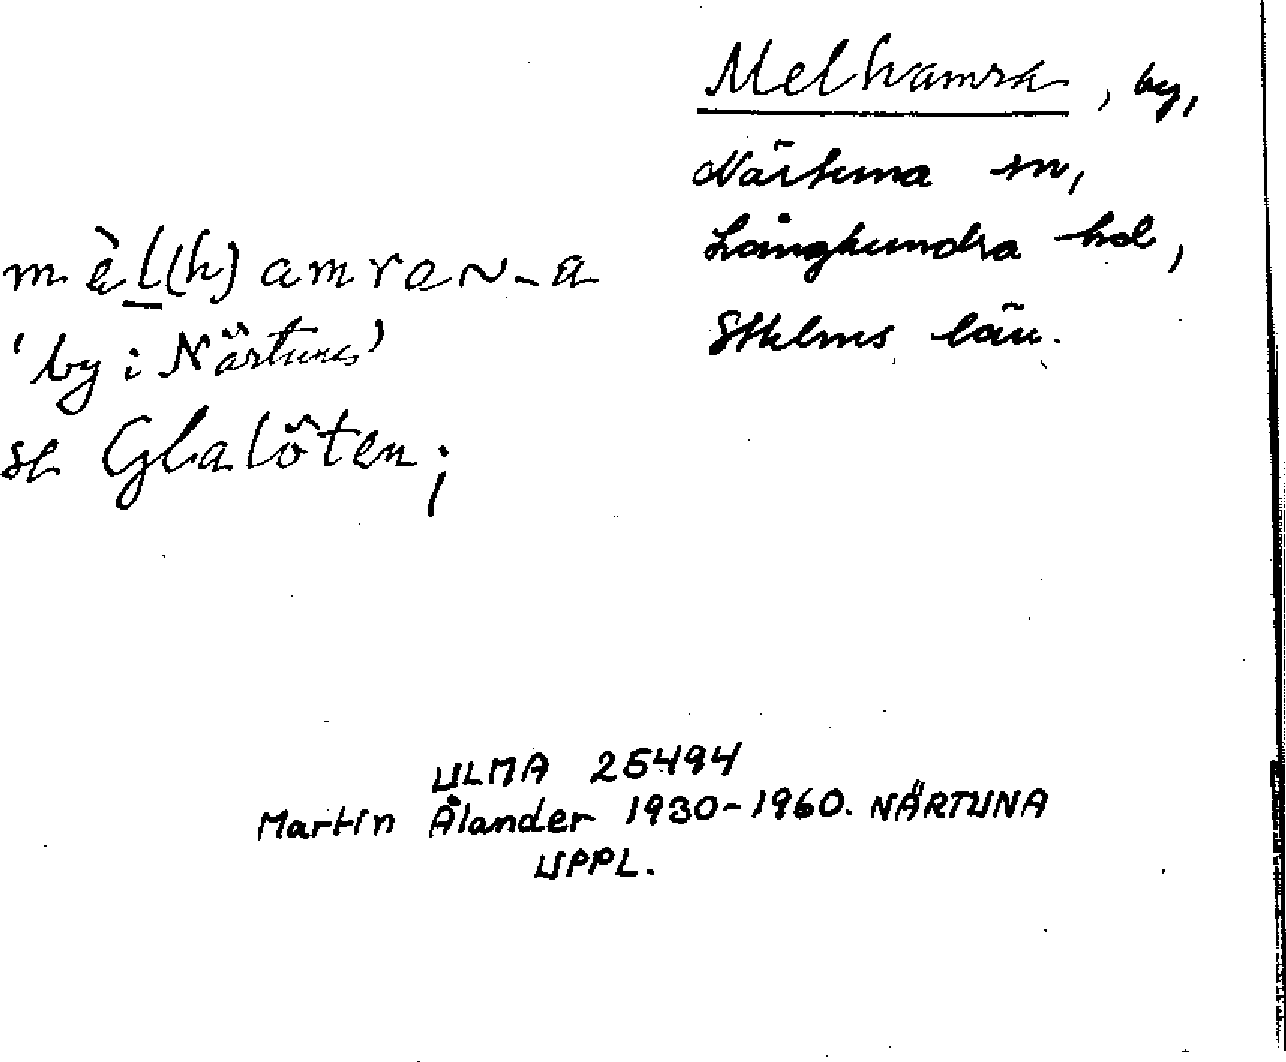 Melhamra, by,
Närtuna sn,
Långhundra hd,
Sthlms län.
mèl(h)amrar~-a
'by i Närtuna'
se Glalöten;
ULMA 25494
Martin Ålander 1930-1960. NÄRTUNA
UPPL.